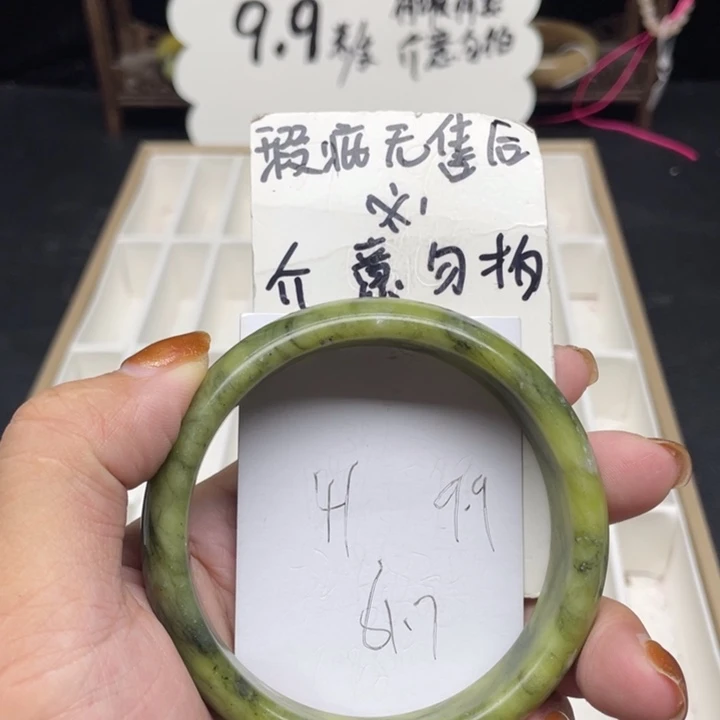 9.9
介意勿拍
瑕疵无售后
介意勿拍
41 9.9
61.7